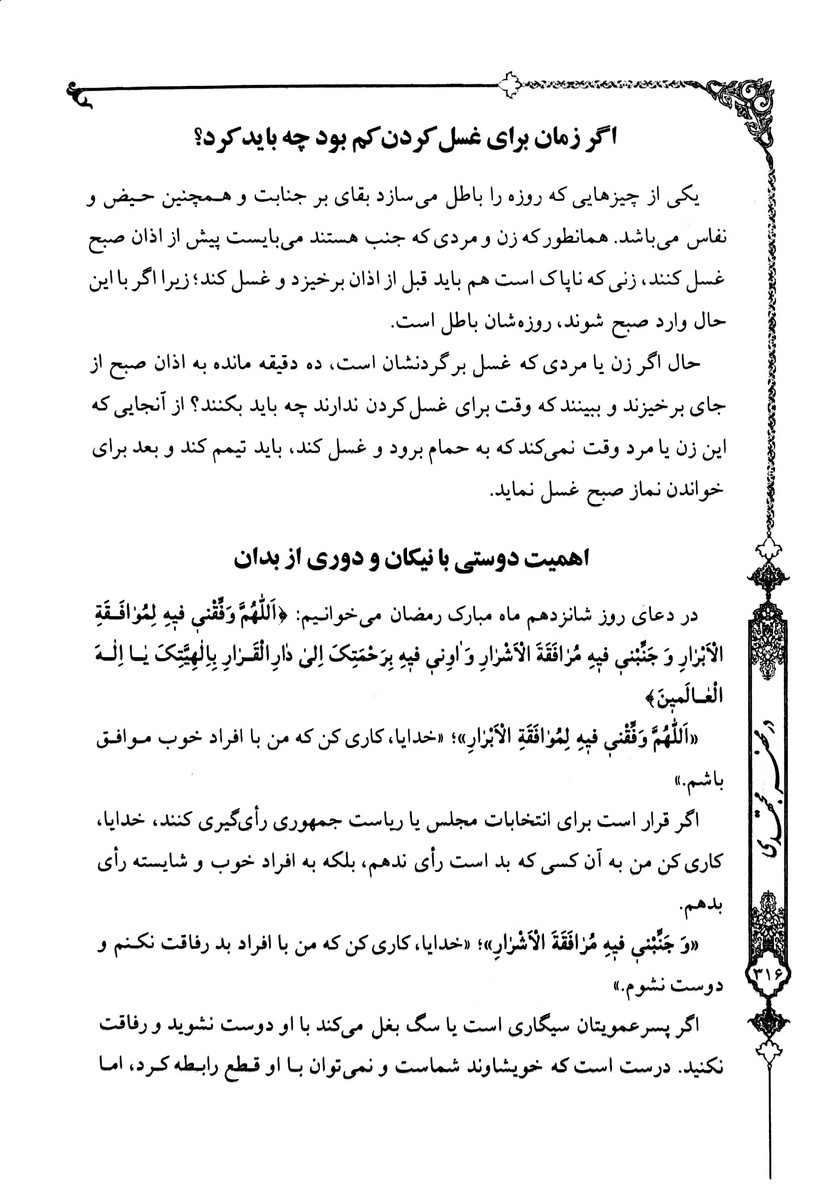 اگر زمان برای غسل کردن کم بود چه باید کرد؟
یکی از چیزهایی که روزه را باطل می‌سازد بقای بر جنابت و همچنین حیض و
نفاس می‌باشد. همانطور که زن و مردی که جنب هستند می‌بایست پیش از اذان صبح
غسل کنند، زنی که ناپاک است هم باید قبل از اذان برخیزد و غسل کند؛ زیرا اگر با این
حال وارد صبح شوند، روزه‌شان باطل است.
حال اگر زن یا مردی که غسل بر گردنشان است، ده دقیقه مانده به اذان صبح از
جای برخیزند و ببینند که وقت برای غسل کردن ندارند چه باید بکنند؟ از آنجایی که
این زن یا مرد وقت نمی‌کند که به حمام برود و غسل کند، باید تیمم کند و بعد برای
خواندن نماز صبح غسل نماید.
اهمیت دوستی با نیکان و دوری از بدان
در دعای روز شانزدهم ماه مبارک رمضان می‌خوانیم: ﴿اَللّٰهُمَّ وَفِّقْني فيهِ لِمُوٰافَقَةِ
الْاَبْرٰارِ وَ جَنِّبْني فيهِ مُرٰافَقَةَ الْاَشْرٰارِ وَ اٰوِني فيهِ بِرَحْمَتِکَ اِلىٰ دٰارِ الْقَرٰارِ بِاِلٰهِيَّتِکَ يٰا اِلٰهَ
الْعٰالَمينَ﴾
«اَللّٰهُمَّ وَفِّقْني فيهِ لِمُوٰافَقَةِ الْاَبْرٰارِ»؛ «خدایا، کاری کن که من با افراد خوب موافق
باشم.»
اگر قرار است برای انتخابات مجلس یا ریاست جمهوری رأی‌گیری کنند، خدایا،
کاری کن من به آن کسی که بد است رأی ندهم، بلکه به افراد خوب و شایسته رأی
بدهم.
«وَ جَنِّبْني فيهِ مُرٰافَقَةَ الْاَشْرٰارِ»؛ «خدایا، کاری کن که من با افراد بد رفاقت نکنم و
دوست نشوم.»
اگر پسرعمویتان سیگاری است یا سگ بغل می‌کند با او دوست نشوید و رفاقت
نکنید. درست است که خویشاوند شماست و نمی‌توان با او قطع رابطه کرد، اما
در محضر مجتهدی
۳۱۶